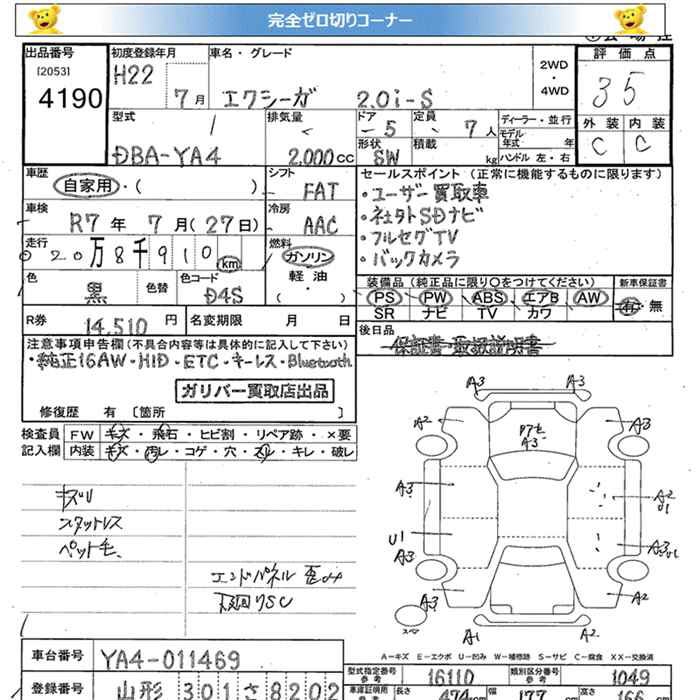 完全ゼロ切りコーナー
出品番号 初度登録年月 車名・グレード 評価点
[2053] H22 2WD
4190 7月 エクシーガ 2.0i-S ・ 4WD 35
型式 排気量 ドア 定員 ディーラー・並行 外装 内装
5 7人 モデル年式 年 C C
DBA-YA4 2,000cc 形状 SW 積載 kg ハンドル 左・右
車歴 シフト セールスポイント (正常に機能するものに限ります)
自家用・( ) FAT ・ユーザー買取車
車検 冷房 ・社外SDナビ
R7年7月(27日) AAC ・フルセグTV
走行 燃料 ・バックカメラ
20万8千910km ガソリン
色 色替 色コード 軽油 装備品(純正品に限り○をつけてください) 新車保証書
黒 D4S ( ・ ) PS PW ABS エアB AW 有・無
SR ナビ TV カワ
R券 14,510円 名変期限 月 日 後日品
注意事項申告欄(不具合内容等は具体的に記入して下さい) 保証書・取扱説明書
・純正16AW・HID・ETC・キーレス・Bluetooth
ガリバー買取店出品
修復歴 有 〔箇所 〕
検査員 FW キズ・飛石・ヒビ割・リペア跡・×要
記入欄 内装 キズ・汚レ・コゲ・穴・スレ・キレ・破レ
A3 A3
A2 A3 A3
キズU
スタットレス
ペット毛
A3 A2 U1
U1 A3 A3
エンドパネル歪み
下廻りSC
A3 A2
スペア A1 A2
A-キズ E-エクボ U-凹み W-補修跡 S-サビ C-腐食 XX-交換済
車台番号 YA4-011469 型式指定番号 参考 16110 類別区分番号 参考 1049
登録番号 山形 301 さ 8202 車庫証明用 参考 長さ 474cm 幅 177cm 高さ 166cm